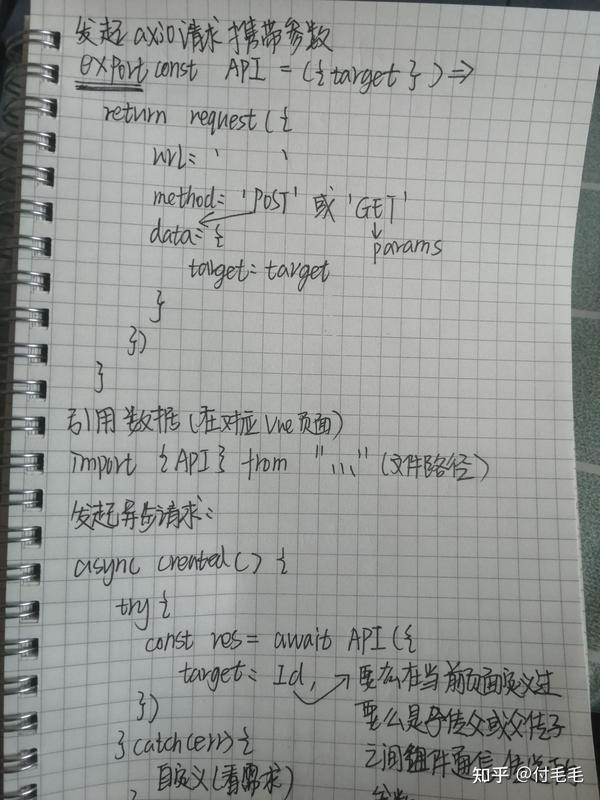 发起axio请求携带参数
export const API = ({target}) =>
return request({
url: ' '
method: 'POST' 或 'GET'
data: {
params
target: target
}
})
}
引用数据(在对应Vue页面)
import {API} from "..." (文件路径)
发起异步请求:
async created() {
try {
const res = await API({
target: Id, 要么在当前页面定义过
}) 要么是子传父或父传子
} catch(err) { 之间组件通信
自定义(看需求)
知乎 @付毛毛